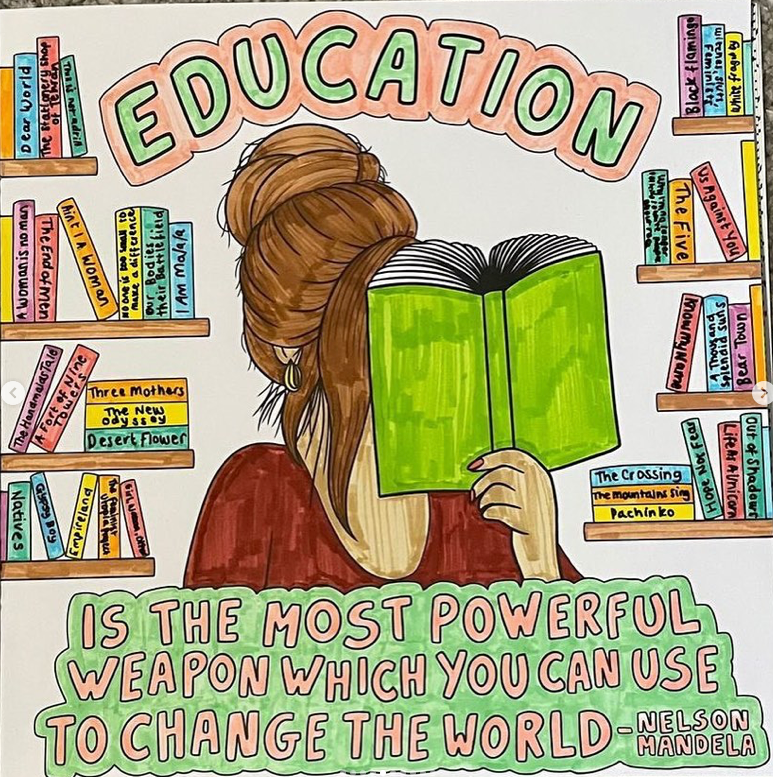 EDUCATION
Dear World
The Stationery shop
of Tehran
Black flamingo
Feminists
White fragility
A Woman is no man
The End of Men
Ain't I A Woman
no one is too small to
make a difference
Our Bodies
their Battlefield
I Am Malala
The Five
Us Against You
The Handmaids Tale
A Fort of Nine
Towers
Three Mothers
The New
Odyssey
Desert Flower
Know My Name
A Thousand
Splendid suns
Bear Town
Natives
Glassy Boy
Empireland
Girl, Woman, Other
The Crossing
The Mountains Sing
Pachinko
Hope Not Fear
Life As A Unicorn
Out of Shadows
IS THE MOST POWERFUL
WEAPON WHICH YOU CAN USE
TO CHANGE THE WORLD - NELSON
MANDELA